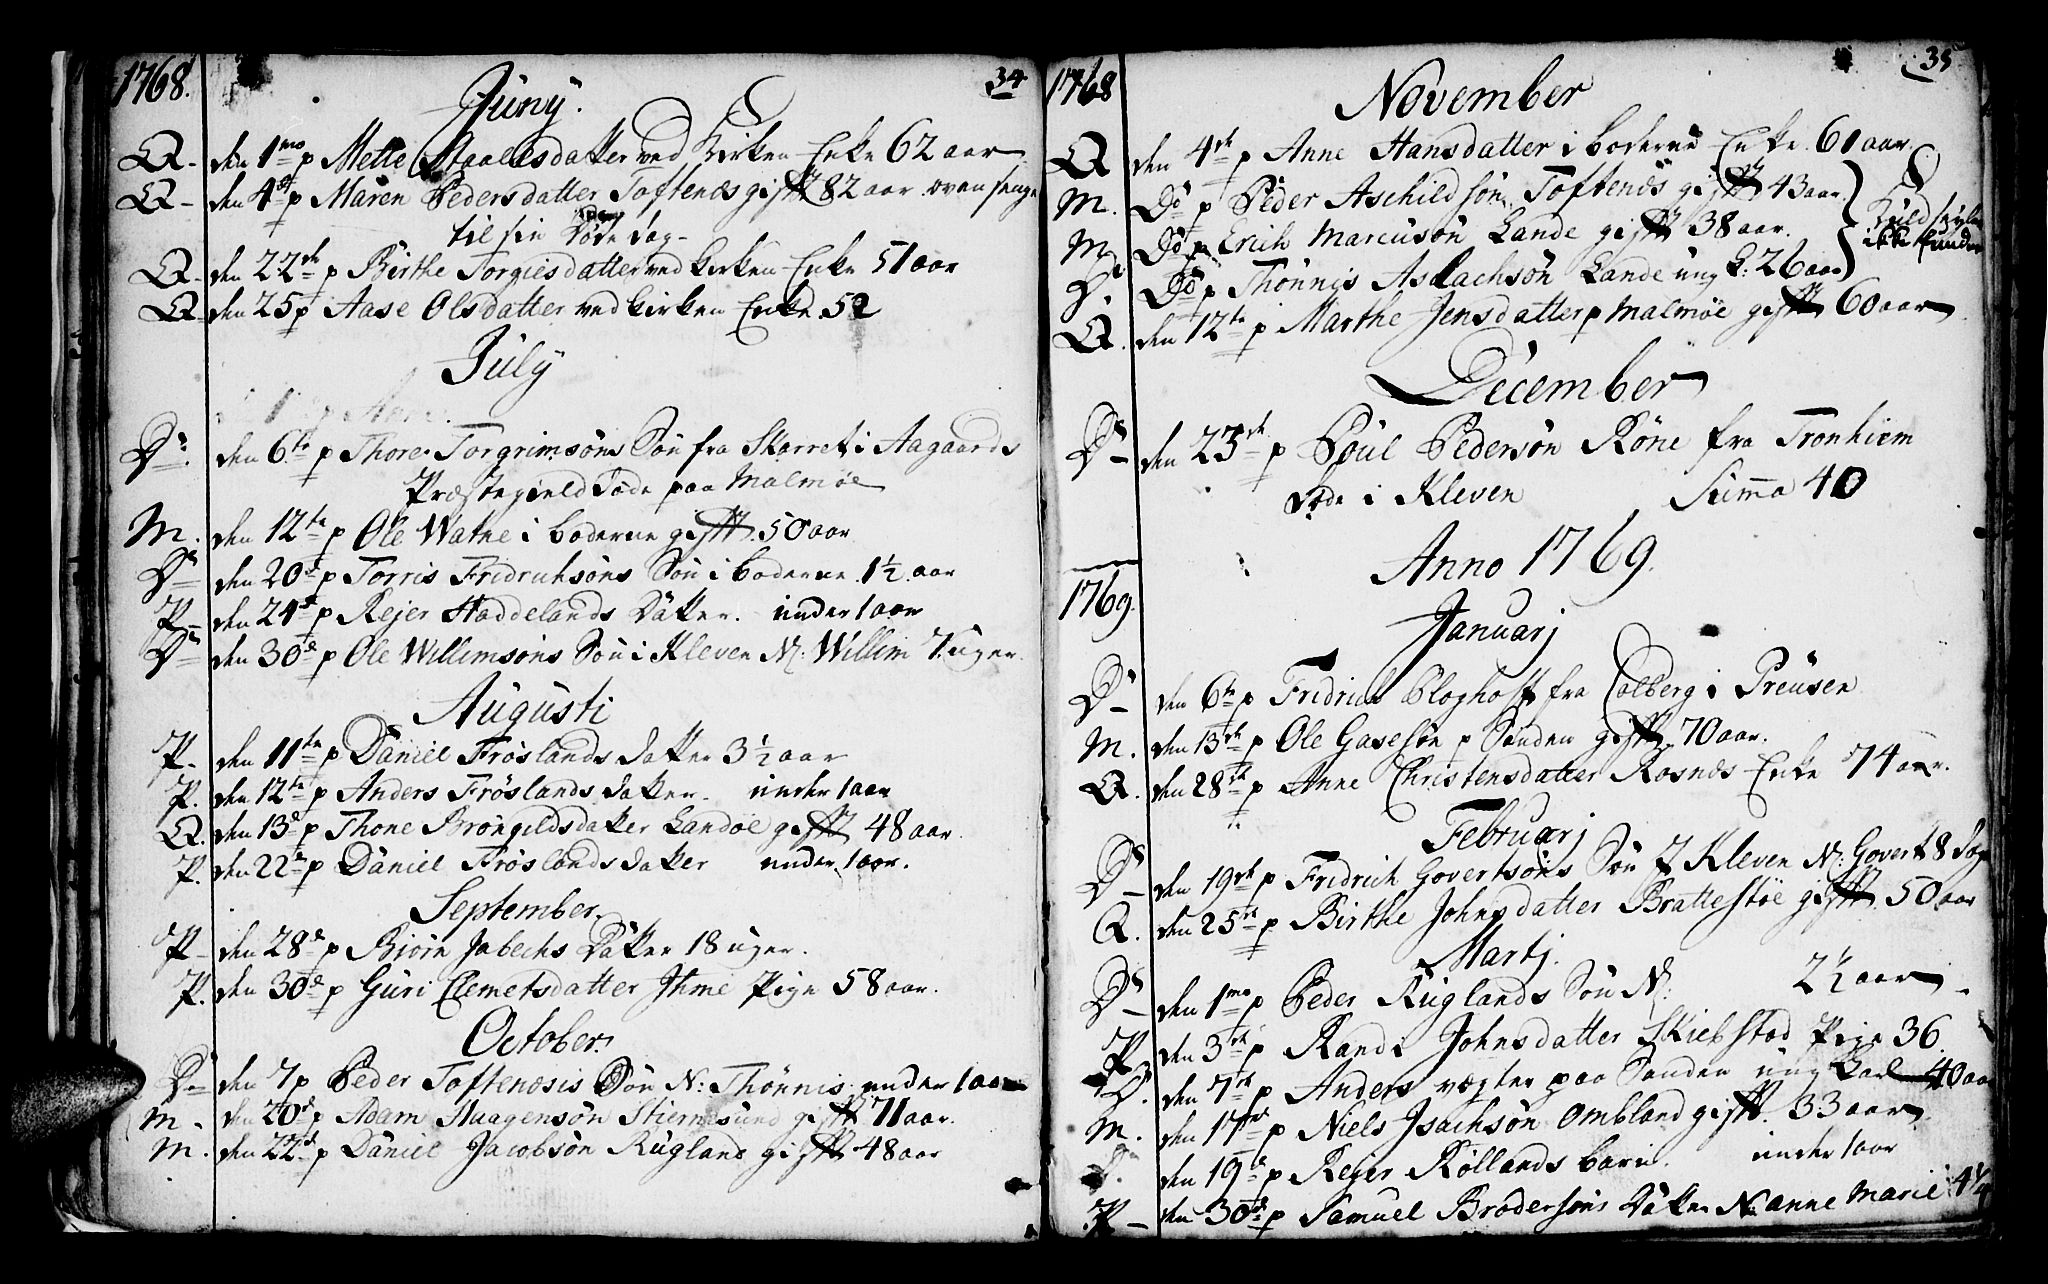 1768. 34
Juny.
Q- den 1mo p Mette Staalesdatter ved Kirken Enke 62 aar
Q- den 4de p Maren Pedersdatter Toftenæs gifft 82 aar
til sin Døde dag-
Q- den 22de p Birthe Torgiesdatter ved Kirken Enke 51 aar
Q- den 25 p Aase Olsdatter ved Kirken Enke 52
July
Dr. den 6te p Thore Torgrimsøns Søn fra Skorret i Aagaards
Præstegield døde paa Malmøe
M. den 12te p Ole Watne i boderne gifft 50 aar
Dr den 20de p Torris Fridrichsøns Søn i boderne 1½ aar
P- den 24de p Rejer Haddelands Datter. under 1 aar
Dr den 30de p Ole Willimsøns Søn i Kleven N: Willim 7. uger.
Augusti
P. den 11te p Daniel Frøslands datter 3½ aar
P. den 12te p Anders Frøslands datter under 1 aar
Q. den 13de p Thone Brøngildsdatter Landøe gifft 48 aar.
P. den 22de p Daniel Frøslands datter under 1 aar.
September.
P- den 28de p Biørn Jabechs Datter 18 uger.
P. den 30de p Guri Clemetsdatter Ihme Pige 58 aar.
October.
Dr den 7 p Peder Toftenæsis Søn N: Thønnis under 1 aar
M. den 20de p Adam Haagensøn Stiernesund gifft 71 aar.
M. den 22de p Daniel Jacobsøn Rugland gifft 48 aar
1768 35
November
Q den 4de p Anne Hansdatter i boderne Enke 61 aar.
M. Do p Peder Aschildsøn Toftenæs gifft 43 aar
M. Do p Erich Marcusøn Lande gifft 38 aar.
D. Do p Thønnis Aslachsøn Lande ung K: 26 aar
ikke funden
Q. den 12te p Marthe Jensdatter p Malmøe gifft 60 aar
December
Dr den 23de p Poul Pedersøn Røne fra Tronhiem
døde i Kleven Suma 40
Anno 1769.
1769.
Januarj
Dr den 6te p Fridrich Bloghoff fra Colberg i Preusen
M. den 13de p Ole Gasesøn p Sanden gifft 70 aar.
Q. den 28de p Anne Christensdatter Rosnæs Enke 74 aar.
Februarj
Dr den 19de p Fridrich Govertsøns Søn i Kleven N: Govert 8 dage
Q. den 25de p Birthe Johnsdatter Brattestøe gifft 50 aar
Martj.
Dr den 1mo p Peder Ruglands Søn N: 2½ aar
P. den 3de p Randi Johnsdatter Skiebstad Pige 36.
D. den 7de p Anders vægter paa Sanden ung Karl 40 aar
M. den 17de p Niels Isachsøn Ombland gifft. 33 aar
den 19de p Rejer Røllands barn. under 1 aar
P- den 30de p Samuel Brodersøns Datter N: Anne Marie 4¼